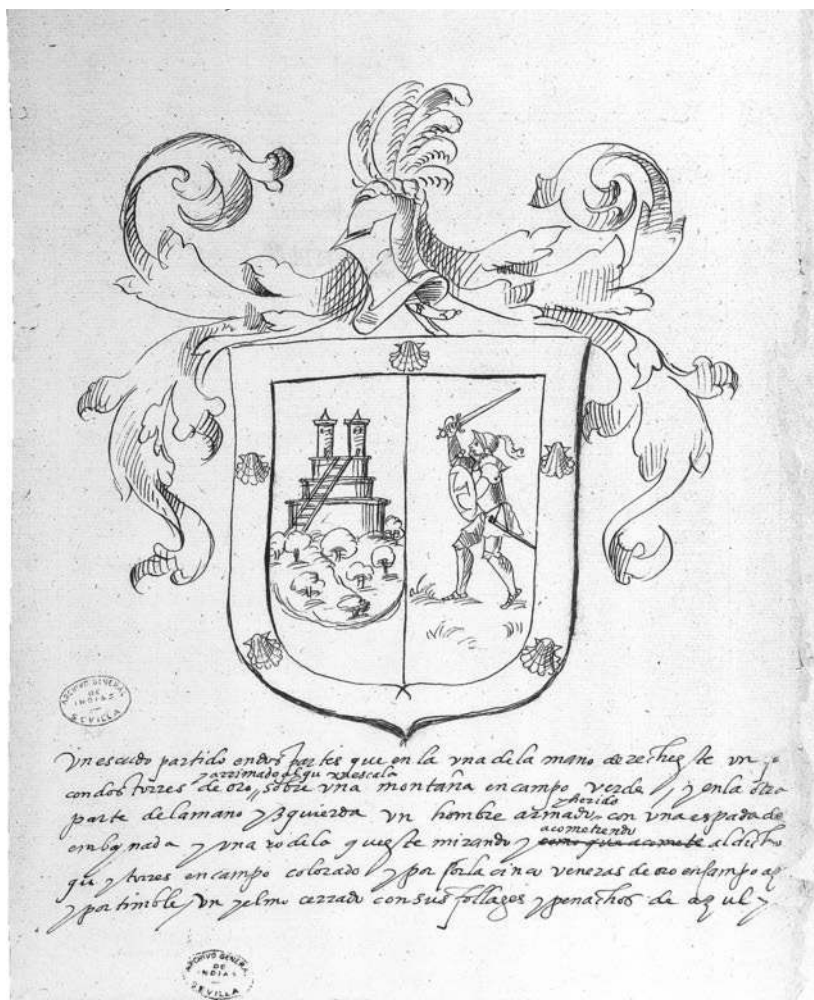 ARCHIVO GENERAL
DE
INDIAS
SEVILLA
Un escudo partido en dos partes que en la una de la mano derecha este un
y arrimado al qu una escala
con dos torres de oro, sobre una montaña en campo verde, y en la otra
y herido
parte de la mano yzquierda un hombre armado con una espada de
acometiendo
embaynada y una rodela que este mirando y como que acomete al dicho
qu y torres en campo colorado y por orla cinco veneras de oro en campo az
y por timble un yelmo cerrado con sus follages y penachos de azul y
ARCHIVO GENERAL
DE
INDIAS
SEVILLA